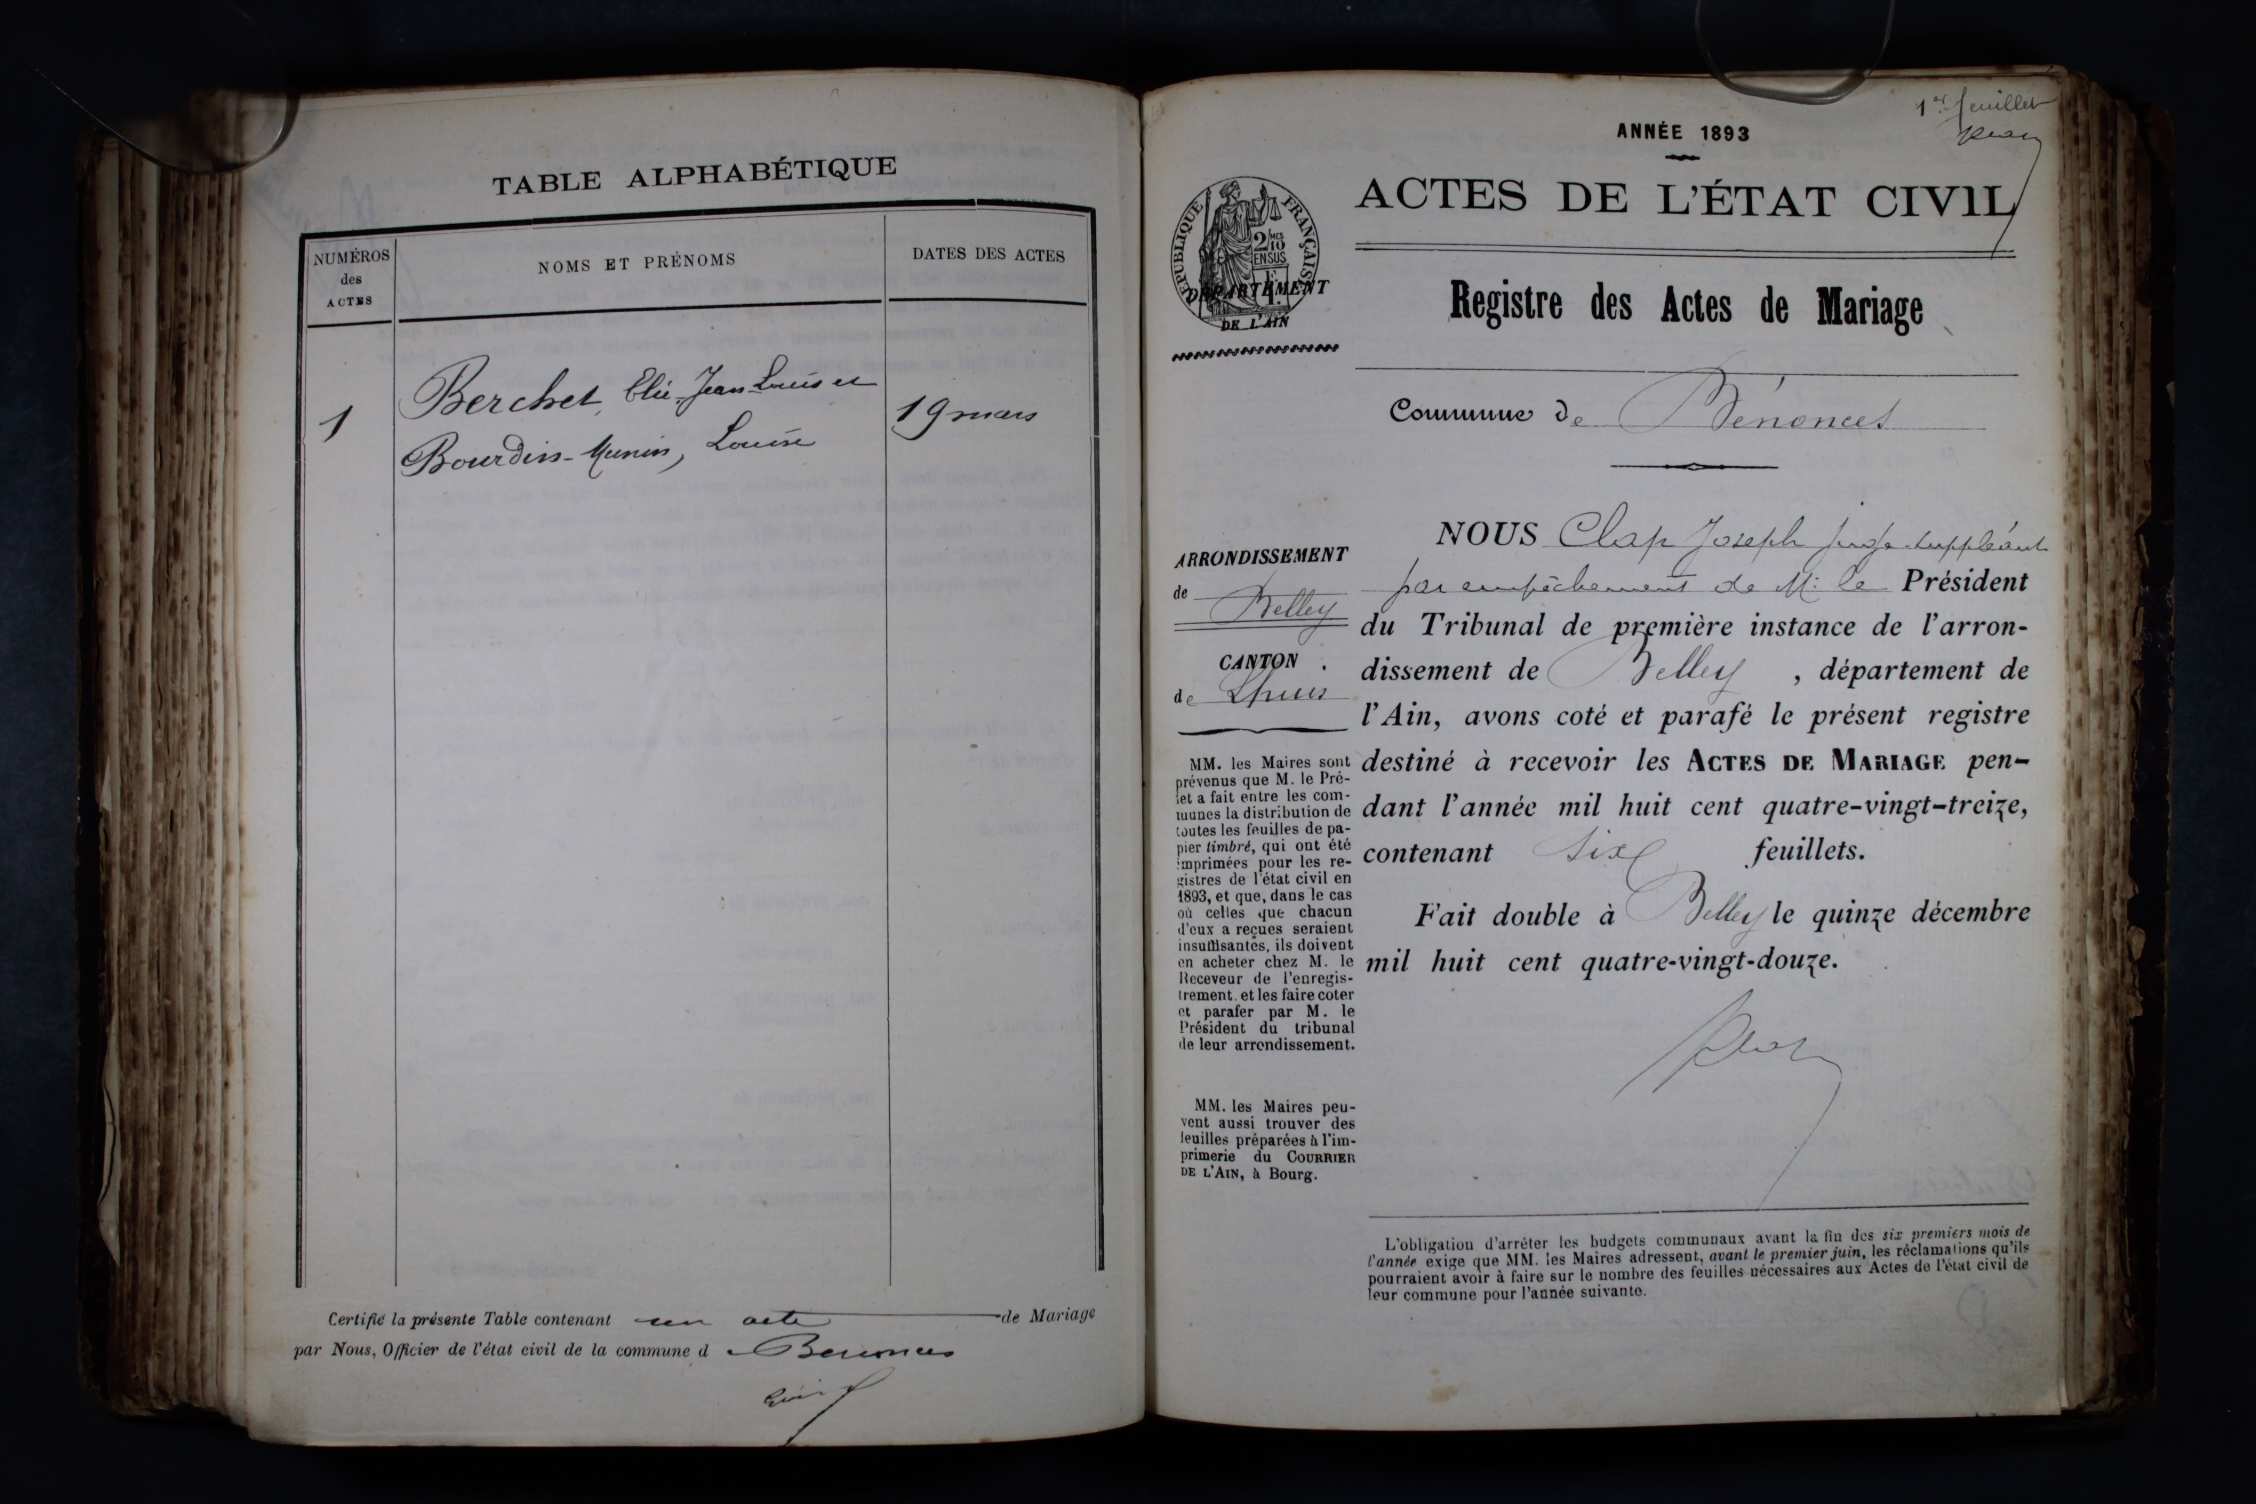 TABLE ALPHABÉTIQUE
NUMÉROS
des
ACTES
NOMS ET PRÉNOMS
DATES DES ACTES
1
Berchet, Elie Jean-Louis et
Bourdin-Munin, Louise
19 mars
Certifié la présente Table contenant un acte de Mariage
par Nous, Officier de l'état civil de la commune de Benonces
1er feuillet
ANNÉE 1893
ACTES DE L'ÉTAT CIVIL
RÉPUBLIQUE FRANÇAISE
2/10 MES
EN SUS
DÉPARTEMENT
DE L'AIN
Registre des Actes de Mariage
Commune de Bénonces
ARRONDISSEMENT
de Belley
CANTON
de Lhuis
MM. les Maires sont
prévenus que M. le Pré-
fet a fait entre les com-
munes la distribution de
toutes les feuilles de pa-
pier timbré, qui ont été
imprimées pour les re-
gistres de l'état civil en
1893, et que, dans le cas
où celles que chacun
d'eux a reçues seraient
insuffisantes, ils doivent
en acheter chez M. le
Receveur de l'enregis-
trement, et les faire coter
et parafer par M. le
Président du tribunal
de leur arrondissement.
MM. les Maires peu-
vent aussi trouver des
feuilles préparées à l'im-
primerie du COURRIER
DE L'AIN, à Bourg.
NOUS Clap Joseph juge suppléant
par empêchement de M. le Président
du Tribunal de première instance de l'arron-
dissement de Belley, département de
l'Ain, avons coté et parafé le présent registre
destiné à recevoir les ACTES DE MARIAGE pen-
dant l'année mil huit cent quatre-vingt-treize,
contenant six feuillets.
Fait double à Belley le quinze décembre
mil huit cent quatre-vingt-douze.
L'obligation d'arrêter les budgets communaux avant la fin des six premiers mois de
l'année exige que MM. les Maires adressent, avant le premier juin, les réclamations qu'ils
pourraient avoir à faire sur le nombre des feuilles nécessaires aux Actes de l'état civil de
leur commune pour l'année suivante.